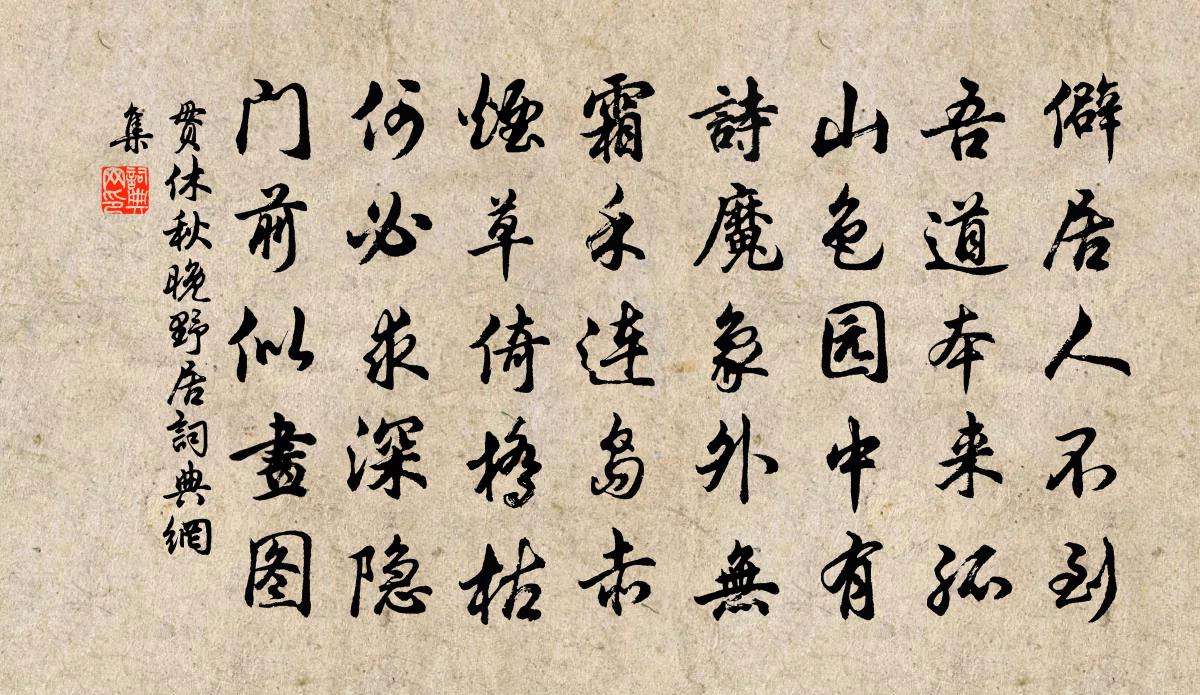 僻居人不到
吾道本来孤
山色园中有
詩魔象外無
霜禾連島赤
煙草倚橋枯
何必求深隐
门前似畫图
貫休秋晚野居詞典網
集
詞典
网印